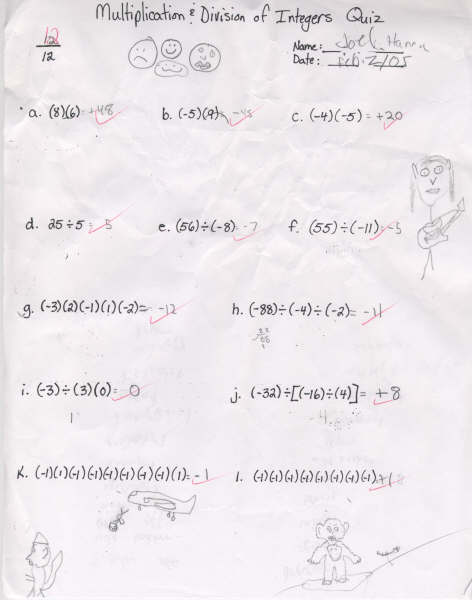 Multiplication & Division of Integers Quiz
12
12
Name: Joel Hanna
Date: Feb. 2/05
a. (8)(6)= +48 b. (-5)(9)= -45 c. (-4)(-5)= +20
d. 25÷5= 5 e. (56)÷(-8)= -7 f. (55)÷(-11)= -5
g. (-3)(2)(-1)(1)(-2)= -12 h. (-88)÷(-4)÷(-2)= -11
i. (-3)÷(3)(0)= 0 j. (-32)÷[(-16)÷(4)]= +8
-4
k. (-1)(1)(-1)(-1)(-1)(-1)(-1)(-1)(1)= -1 l. (-1)(-1)(-1)(-1)(-1)(-1)(-1)(-1)= +1